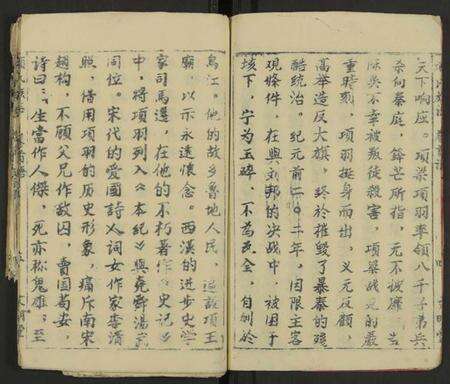 天下响应。项梁项羽率领八千子弟兵
杀向秦庭，锋芒所指，无不披靡。吉
陈英不幸被叛徒殺害，项梁战死的嚴
重時刻，项羽挺身而出，义无反顧，
高举造反大旗，终於摧毁了暴秦的殘
酷统治。纪元前二0二年，因限主客
观條件，在與刘邦的决战中，被困于
垓下，宁为玉碎，不為瓦全，自刎於
烏江。他的故乡魯地人民，项王
廟，以示永遠懷念。西漢的进步史学
家司馬遷，在他的不朽著作《史记》
中，将項羽列入《本纪》與尧舜湯武
同位。宋代的愛國詩人词女作家李清
照，借用项羽的历史形象，痛斥南宋
趙构，不顾父兄作敌囚，賣國苟安，
詩曰：生當作人傑，死亦為鬼雄；至